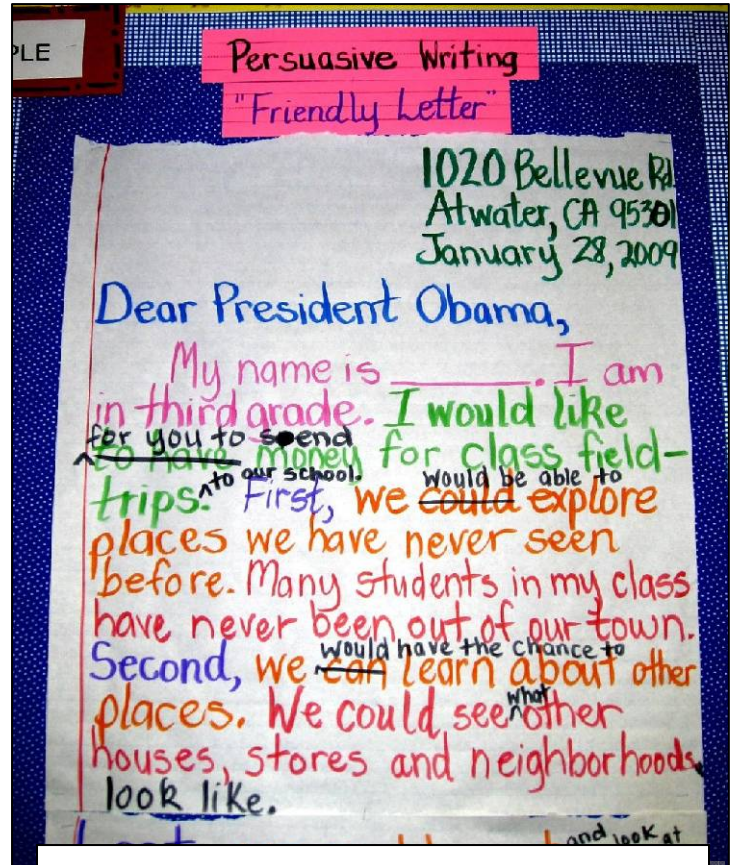 PLE
Persuasive Writing
"Friendly Letter"
1020 Bellevue Rd.
Atwater, CA 95301
January 28, 2009
Dear President Obama,
My name is ______. I am
in third grade. I would like
for you to spend
to have money for class field-
to our school. would be able to
trips. First, we could explore
places we have never seen
before. Many students in my class
have never been out of our town.
would have the chance to
Second, we can learn about other
what
places. We could see other
houses, stores and neighborhoods
look like.
and look at